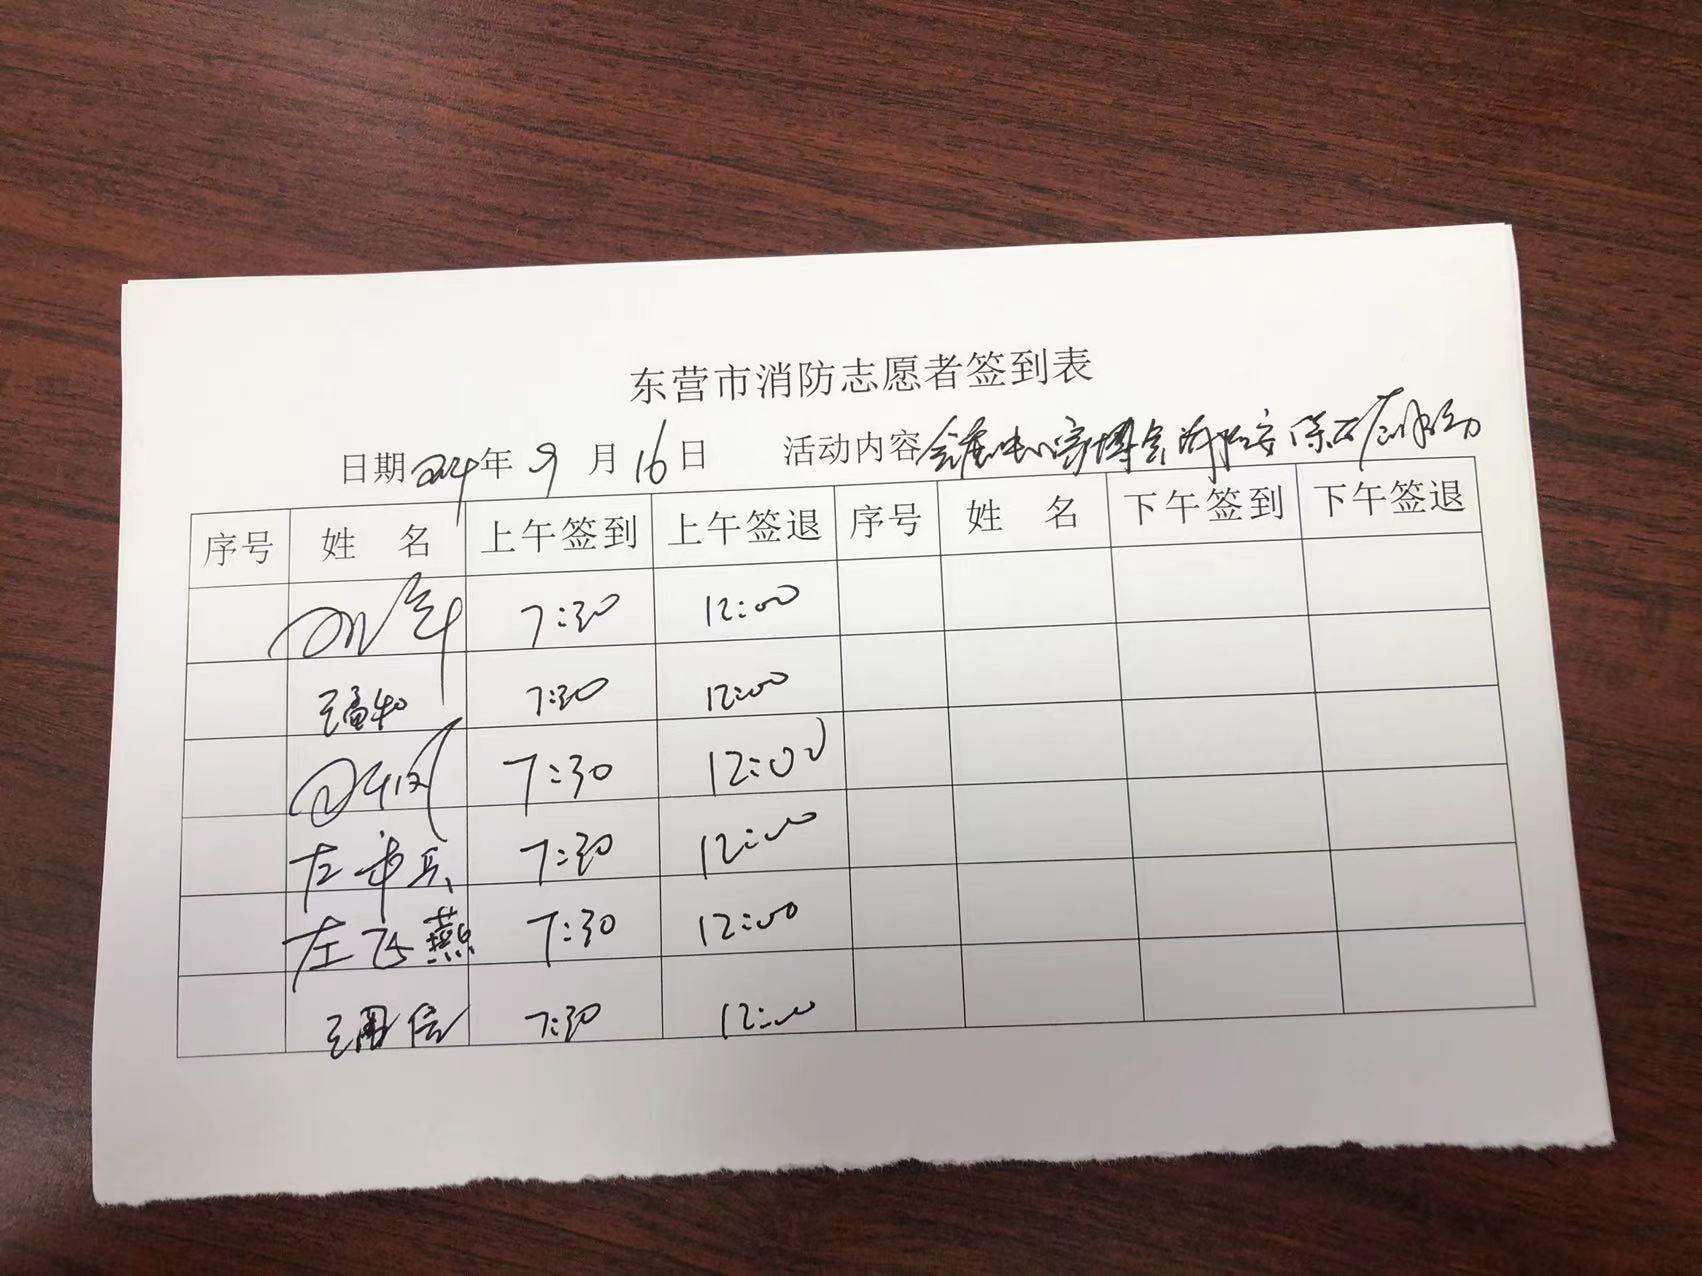 东营市消防志愿者签到表
日期2024年9月16日 活动内容会展中心 博会消防安保
序号 姓名 上午签到 上午签退 序号 姓名 下午签到 下午签退
7:30 12:00
7:30 12:00
7:30 12:00
左 兵 7:30 12:00
左飞燕 7:30 12:00
7:30 12:00